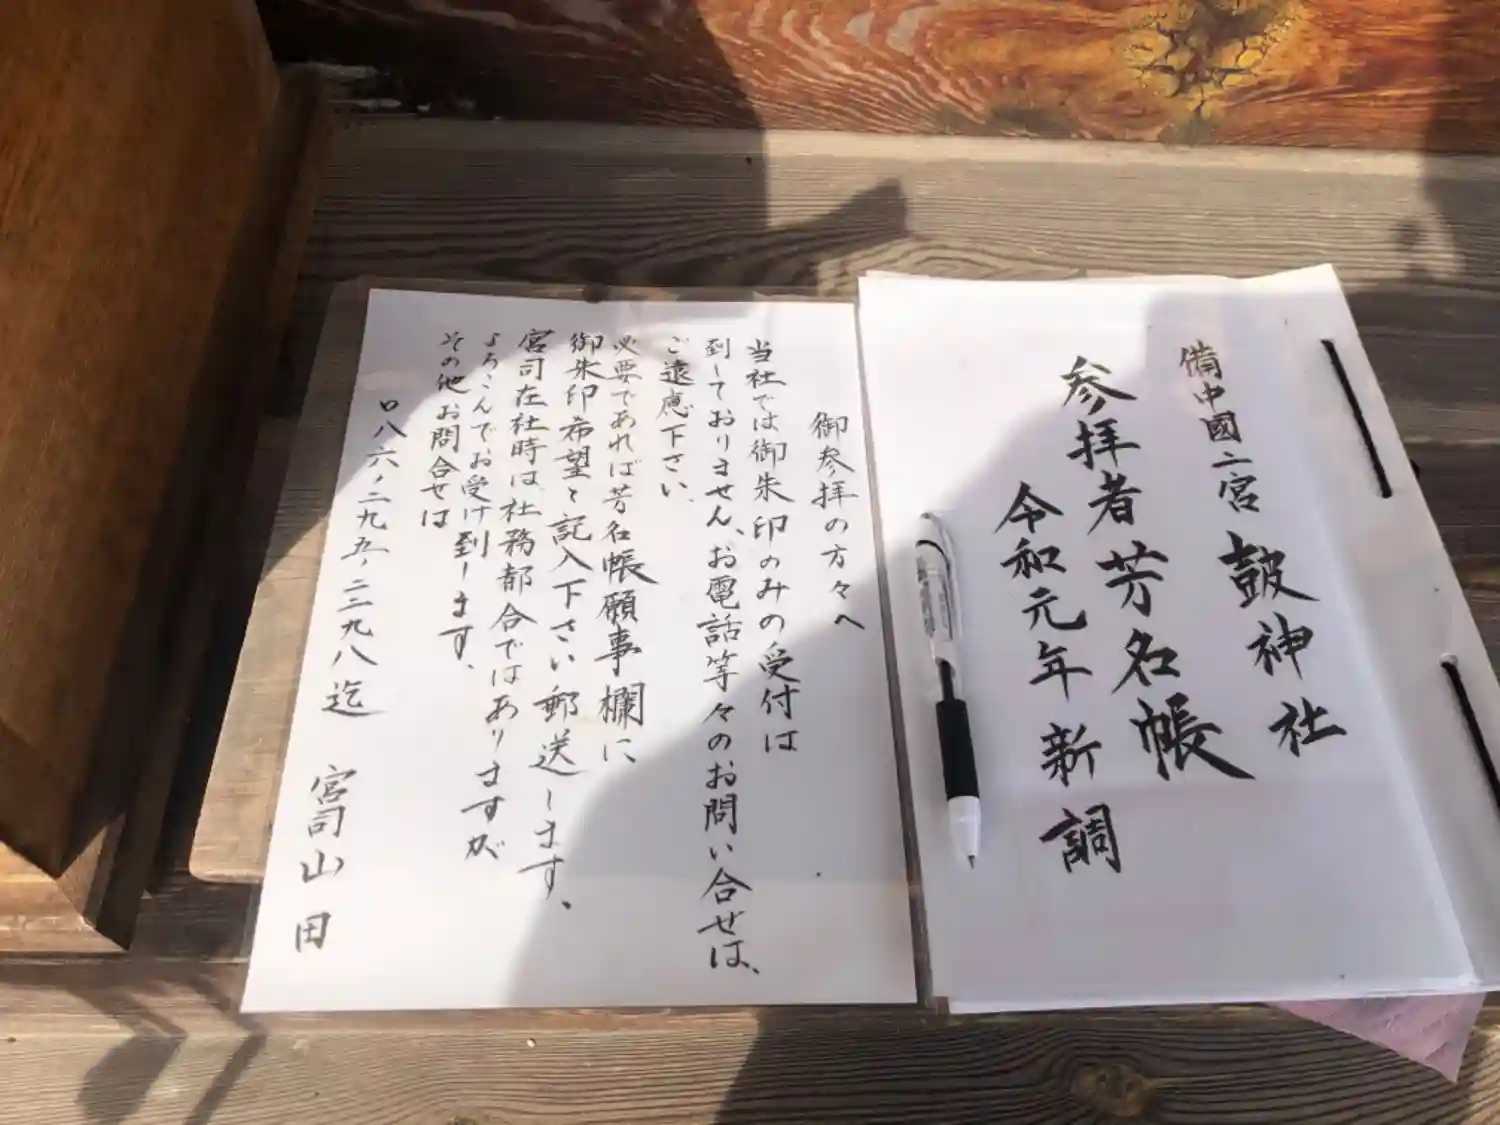 備中國二宮 鼓神社
参拝者芳名帳
令和元年 新調
御参拝の方々へ
当社では御朱印のみの受付は
到しておりません、お電話等々のお問い合せは、
ご遠慮下さい、
必要であれば芳名帳願事欄に
御朱印希望と記入下さい郵送します、
宮司在社時は、社務都合ではありますが
よろこんでお受け到します、
その他お問合せは
〇八六、二九五、二三九八迄
宮司山田